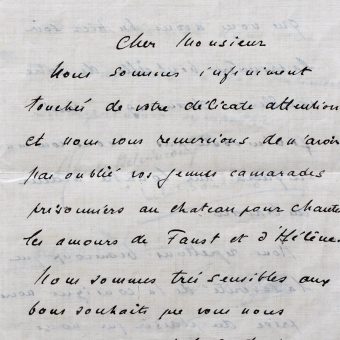 Cher Monsieur
Nous sommes infiniment
touchés de votre délicate attention
et nous vous remercions de n'avoir
pas oublié vos jeunes camarades
prisonniers au chateau pour chanter
les amours de Faust et d'Hélène.
Nous sommes très sensibles aux
bons souhaits que vous nous